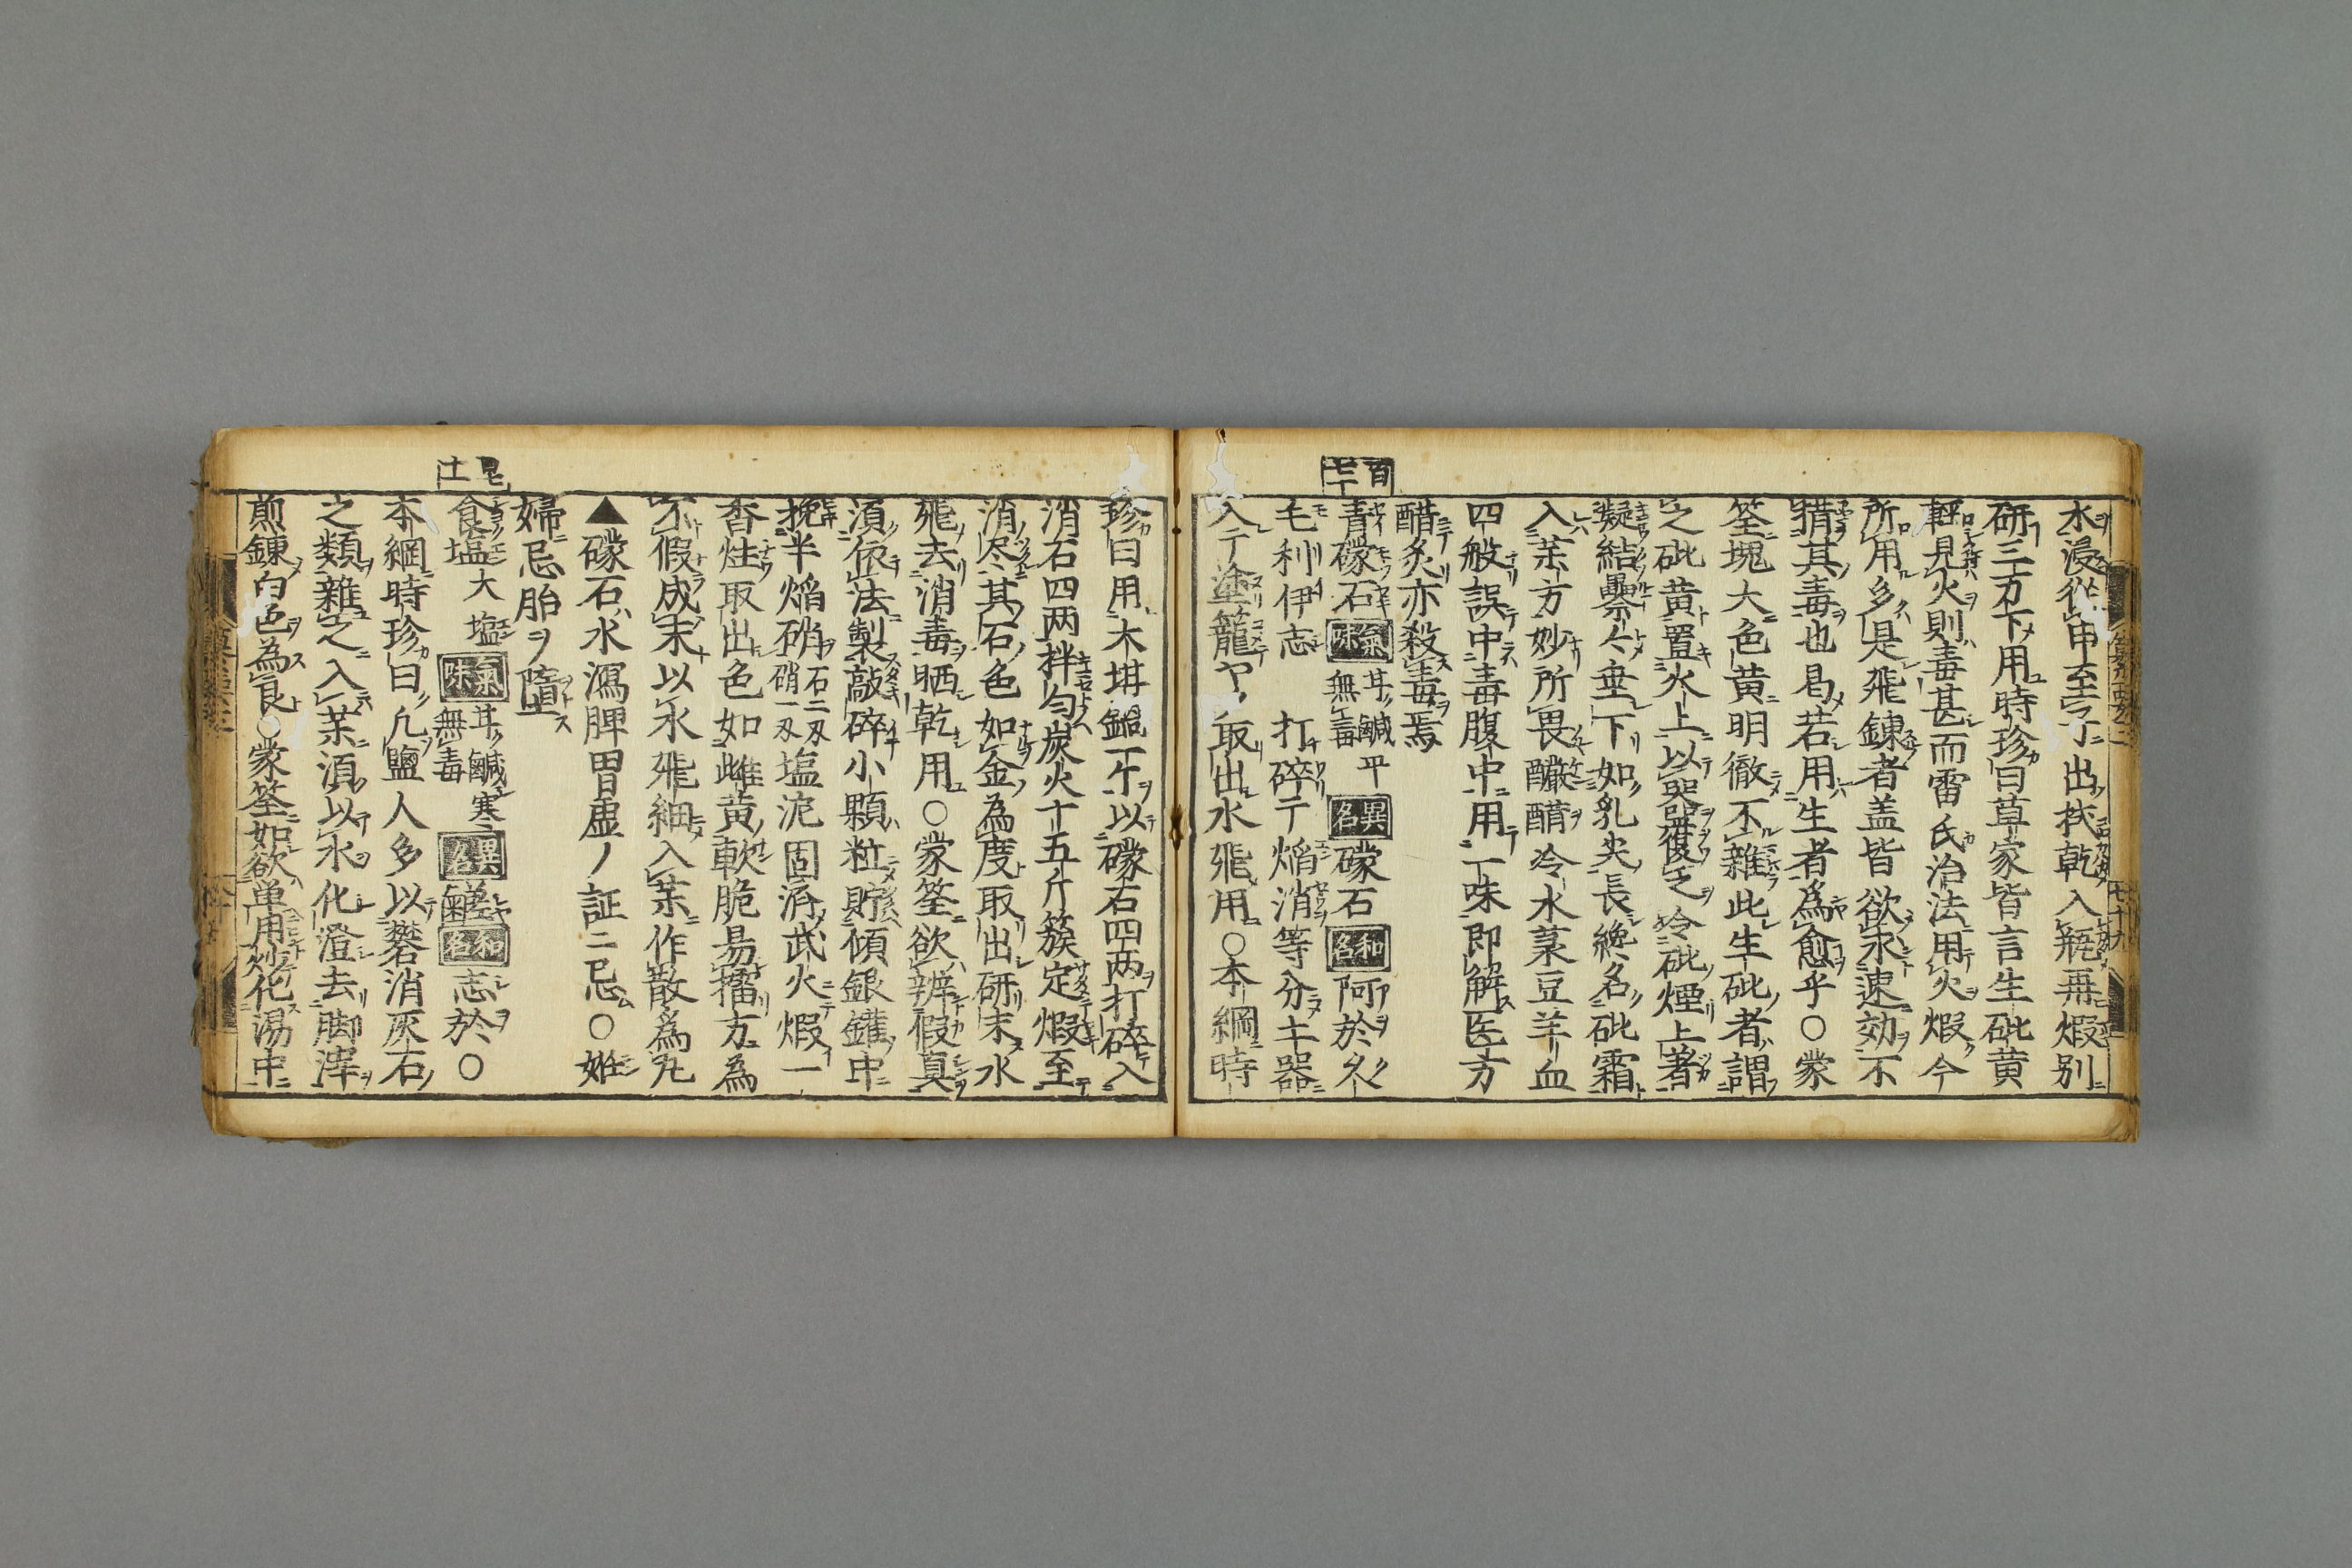 水浸從申至子出拭乾入瓶再煅別
研三万下用時珍曰草家皆言生砒黄
輕見火則毒甚而雷氏治法用火煅今
所用多是飛錬者盖皆欲求速効不
猎其毒也曷若用生者為愈乎○蒙
筌塊大色黄明徹不雜此生砒者謂
之砒黄置火上以器覆之冷砒煙上著
凝結纍々垂下如乳尖長纔名砒霜
入茶方妙所畏醶醋冷水菉豆羊血
四般誤中毒腹中用一味即解医方
醋炙亦殺毒焉
百七十
青礞石 氣味 甘鹹平無毒 異名 礞石 和名 阿於久
毛利伊志 打碎テ焔消等分土器ニ
入テ塗籠ヤヽ取出水飛用○本綱時
珍曰用大坩鍋一个以礞石四两打碎入
消石四两拌匀炭火十五斤簇定煅至
消尽其石色如金為度取出研末水
飛去消毒晒乾用○蒙筌欲辨假真
湏依法製敲碎小顆粒貯傾銀罐中
攙半焔硝石二刄硝一刄塩泥固濟武火煅一
香炷取出色如雌黄軟脆易擂方為
不假成末以水飛細入茶作散為丸
▲礞石水瀉脾胃虚ノ証ニ忌○姙
婦忌胎ヲ墮ス
食塩 大塩 氣味 甘鹹寒無毒 異名 鹺 和名 志於○
本綱時珍曰凡鹽人多以礬消灰石
之類雜之入茶湏以水化澄去脚滓
煎錬白色為良○蒙筌如欲单用炒化湯中